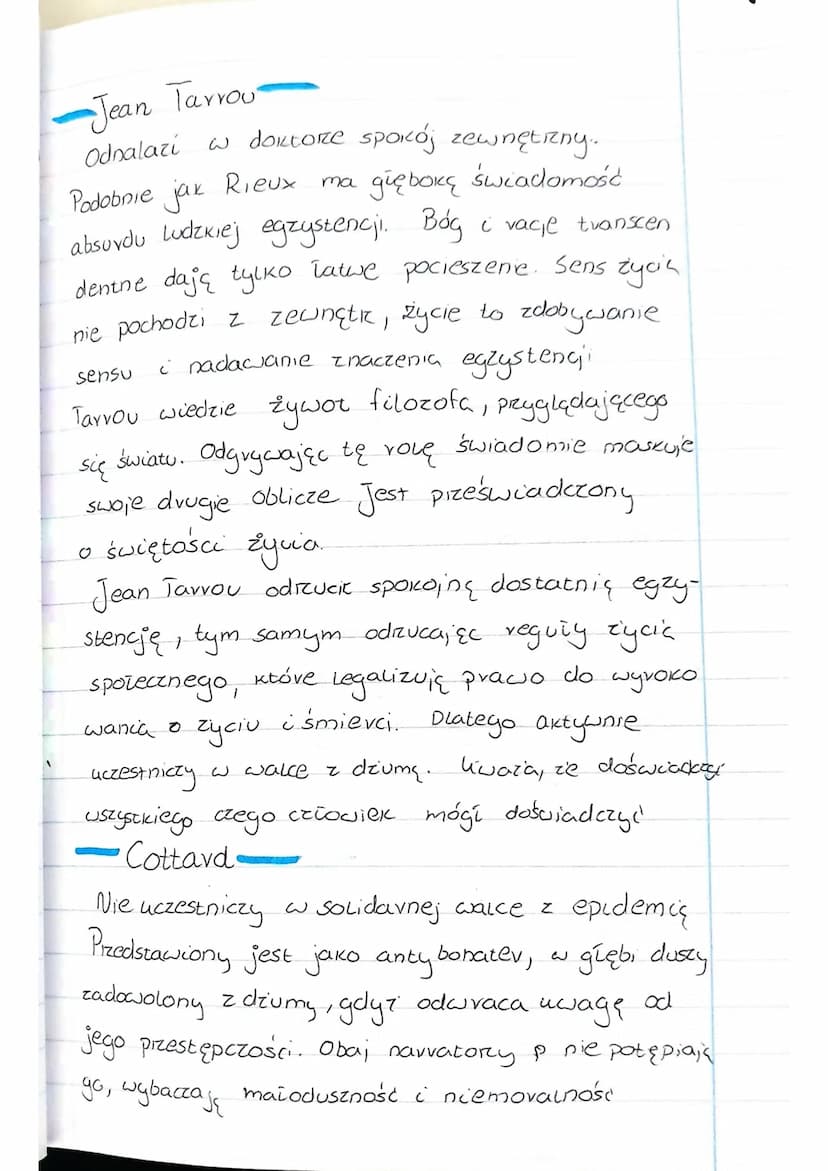 Jean Tarrou
Odnalazł w doktorze spokój zewnętrzny.
Podobnie jak Rieux ma głęboką świadomość
absurdu ludzkiej egzystencji. Bóg i racje transcen
dentne dają tylko łatwe pocieszene. Sens życia
nie pochodzi z zewnątrz, życie to zdobywanie
sensu i nadawanie znaczenia egzystencji
Tarrou wiedzie żywot filozofa, przyglądającego
się światu. Odgrywając tę rolę świadomie maskuje
swoje drugie oblicze Jest przeświadczony
o świętości życia.
Jean Tarrou odrzucił spokojną dostatnią egzy-
stencję, tym samym odrzucając reguły życia
społecznego, które legalizują prawo do wyroko
wania o życiu i śmierci. Dlatego aktywnie
uczestniczy w walce z dżumą. Uważa, że doświadczył
wszystkiego czego człowiek mógł doświadczyć
Cottard
Nie uczestniczy w solidarnej walce z epidemią
Przedstawiony jest jako antybohater, w głębi duszy
zadowolony z dżumy, gdyż odwraca uwagę od
jego przestępczości. Obaj narratorzy nie potępiają
go, wybaczają małoduszność i niemoralność